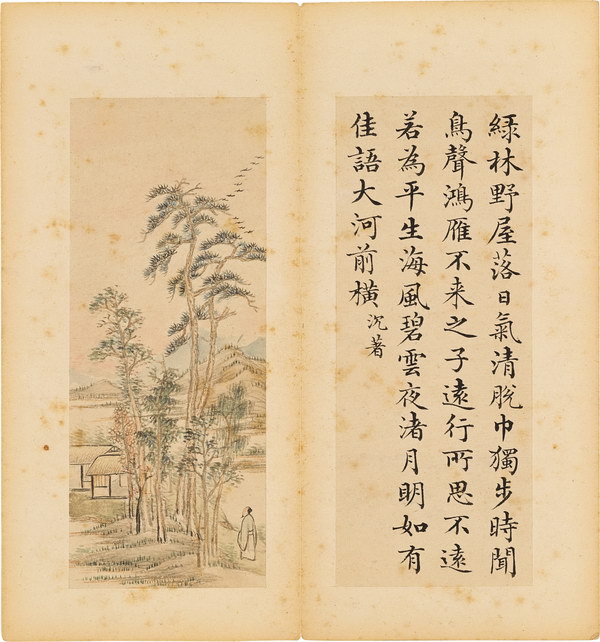 緑林野屋落日氣清脫巾獨步時聞
鳥聲鴻雁不来之子遠行所思不遠
若為平生海風碧雲夜渚月明如有
佳語大河前橫
沉著